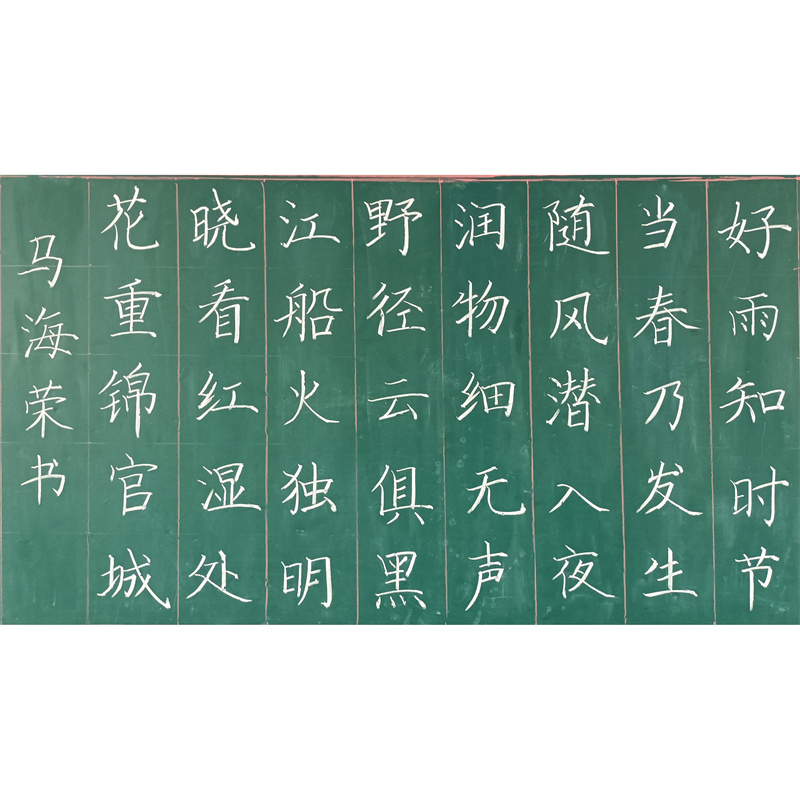 好雨知时节
当春乃发生
随风潜入夜
润物细无声
野径云俱黑
江船火独明
晓看红湿处
花重锦官城
马海荣书